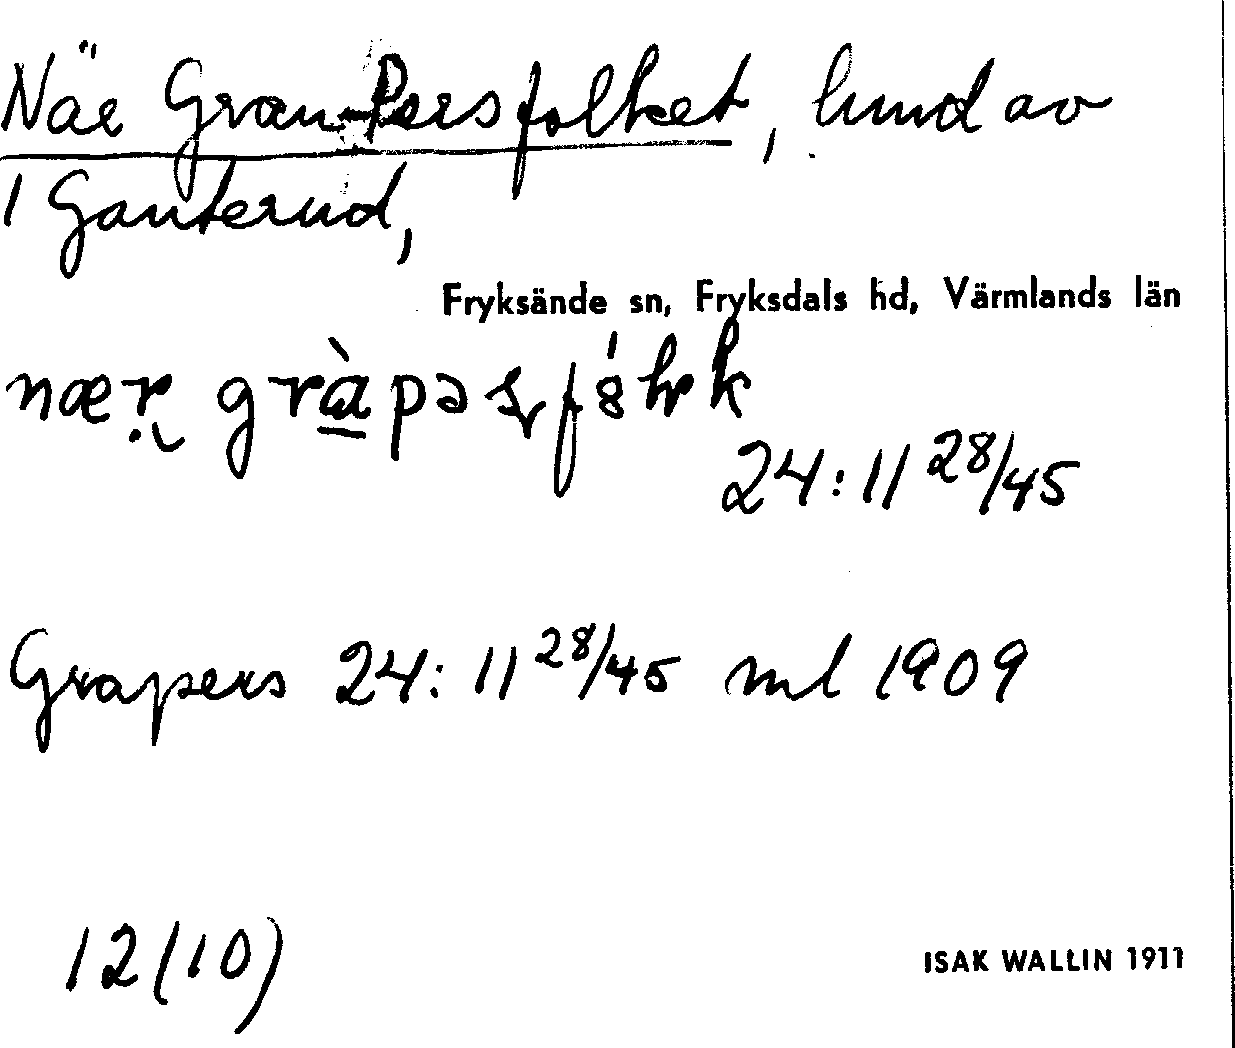 När Gran-Persfolket, lund av
1 Ganterud,
Fryksände sn, Fryksdals hd, Värmlands län
24:11 28/45
Grapers 24:11 28/45 ml 1909
12(10)
ISAK WALLIN 1911